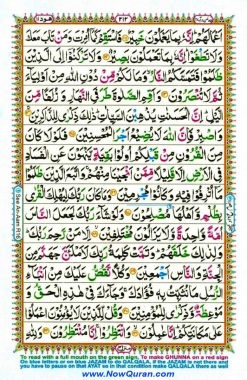 هود ١١
٢١٣
اَعْمَالَهُمْ اِنَّهٗ بِمَا يَعْمَلُوْنَ خَبِيْرٌ فَاسْتَقِمْ كَمَآ اُمِرْتَ وَمَنْ تَابَ مَعَكَ
وَلَا تَطْغَوْا اِنَّهٗ بِمَا تَعْمَلُوْنَ بَصِيْرٌ وَلَا تَرْكَنُوْٓا اِلَى الَّذِيْنَ
ظَلَمُوْا فَتَمَسَّكُمُ النَّارُ وَمَا لَكُمْ مِّنْ دُوْنِ اللّٰهِ مِنْ اَوْلِيَآءَ
ثُمَّ لَا تُنْصَرُوْنَ وَاَقِمِ الصَّلٰوةَ طَرَفَيِ النَّهَارِ وَزُلَفًا مِّنَ
الَّيْلِ اِنَّ الْحَسَنٰتِ يُذْهِبْنَ السَّيِّاٰتِ ذٰلِكَ ذِكْرٰى لِلذّٰكِرِيْنَ
وَاصْبِرْ فَاِنَّ اللّٰهَ لَا يُضِيْعُ اَجْرَ الْمُحْسِنِيْنَ فَلَوْلَا كَانَ
مِنَ الْقُرُوْنِ مِنْ قَبْلِكُمْ اُولُوْا بَقِيَّةٍ يَّنْهَوْنَ عَنِ الْفَسَادِ
فِى الْاَرْضِ اِلَّا قَلِيْلًا مِّمَّنْ اَنْجَيْنَا مِنْهُمْ وَاتَّبَعَ الَّذِيْنَ ظَلَمُوْا
مَآ اُتْرِفُوْا فِيْهِ وَكَانُوْا مُجْرِمِيْنَ وَمَا كَانَ رَبُّكَ لِيُهْلِكَ الْقُرٰى
بِظُلْمٍ وَّاَهْلُهَا مُصْلِحُوْنَ وَلَوْ شَآءَ رَبُّكَ لَجَعَلَ النَّاسَ
اُمَّةً وَّاحِدَةً وَّلَا يَزَالُوْنَ مُخْتَلِفِيْنَ اِلَّا مَنْ رَّحِمَ رَبُّكَ
وَلِذٰلِكَ خَلَقَهُمْ وَتَمَّتْ كَلِمَةُ رَبِّكَ لَاَمْلَـَٔنَّ جَهَنَّمَ مِنَ
الْجِنَّةِ وَالنَّاسِ اَجْمَعِيْنَ وَكُلًّا نَّقُصُّ عَلَيْكَ مِنْ اَنْۢبَآءِ
الرُّسُلِ مَا نُثَبِّتُ بِهٖ فُؤَادَكَ وَجَآءَكَ فِيْ هٰذِهِ الْحَقُّ وَ
مَوْعِظَةٌ وَّذِكْرٰى لِلْمُؤْمِنِيْنَ وَقُلْ لِّلَّذِيْنَ لَا يُؤْمِنُوْنَ اعْمَلُوْا
عَلٰى مَكَانَتِكُمْ اِنَّا عٰمِلُوْنَ وَانْتَظِرُوْا اِنَّا مُنْتَظِرُوْنَ وَلِلّٰهِ
To read with a full mouth on the green sign. To make GHUNNA on a red sign
On blue letters or on blue JAZAM to do QALQALA, if the JAZAM is not there and
you have to pause on that AYAT so in that condition make QALQALA there as well
www.NowQuran.com